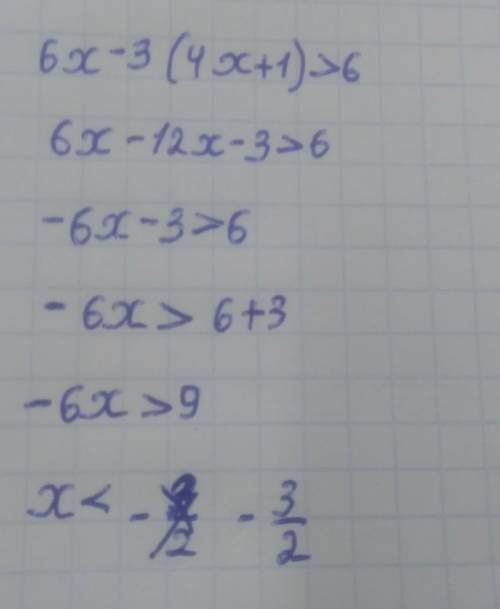 6x-3(4x+1)>6
6x-12x-3>6
-6x-3>6
-6x>6+3
-6x>9
x< - 3/2